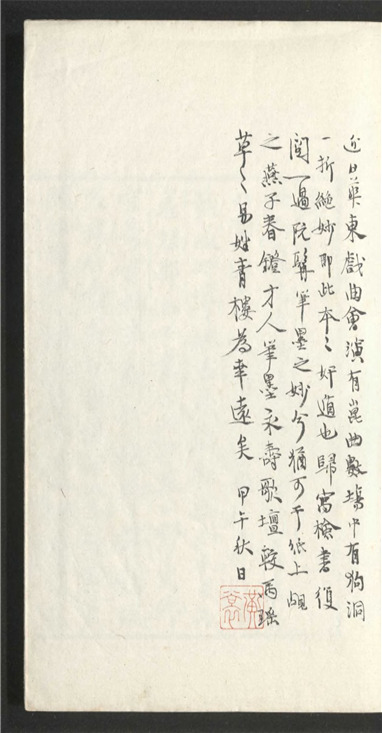 近日華東戲曲會演有崑曲數場中有狗洞
一折絕妙即此本之奸遁也歸寓檢書復
閱一過阮髯筆墨之妙今猶可于紙上覘
之燕子春鐙才人筆墨永壽歌壇殺雨瑤
草之易姓青樓為幸遠矣 甲午秋日